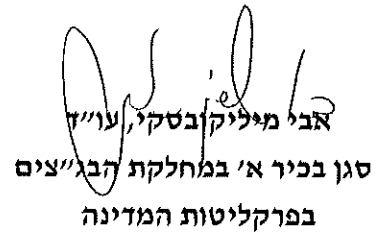 אבי מיליקובסקי, עו״ד
סגן בכיר א׳ במחלקת הבג״צים
בפרקליטות המדינה